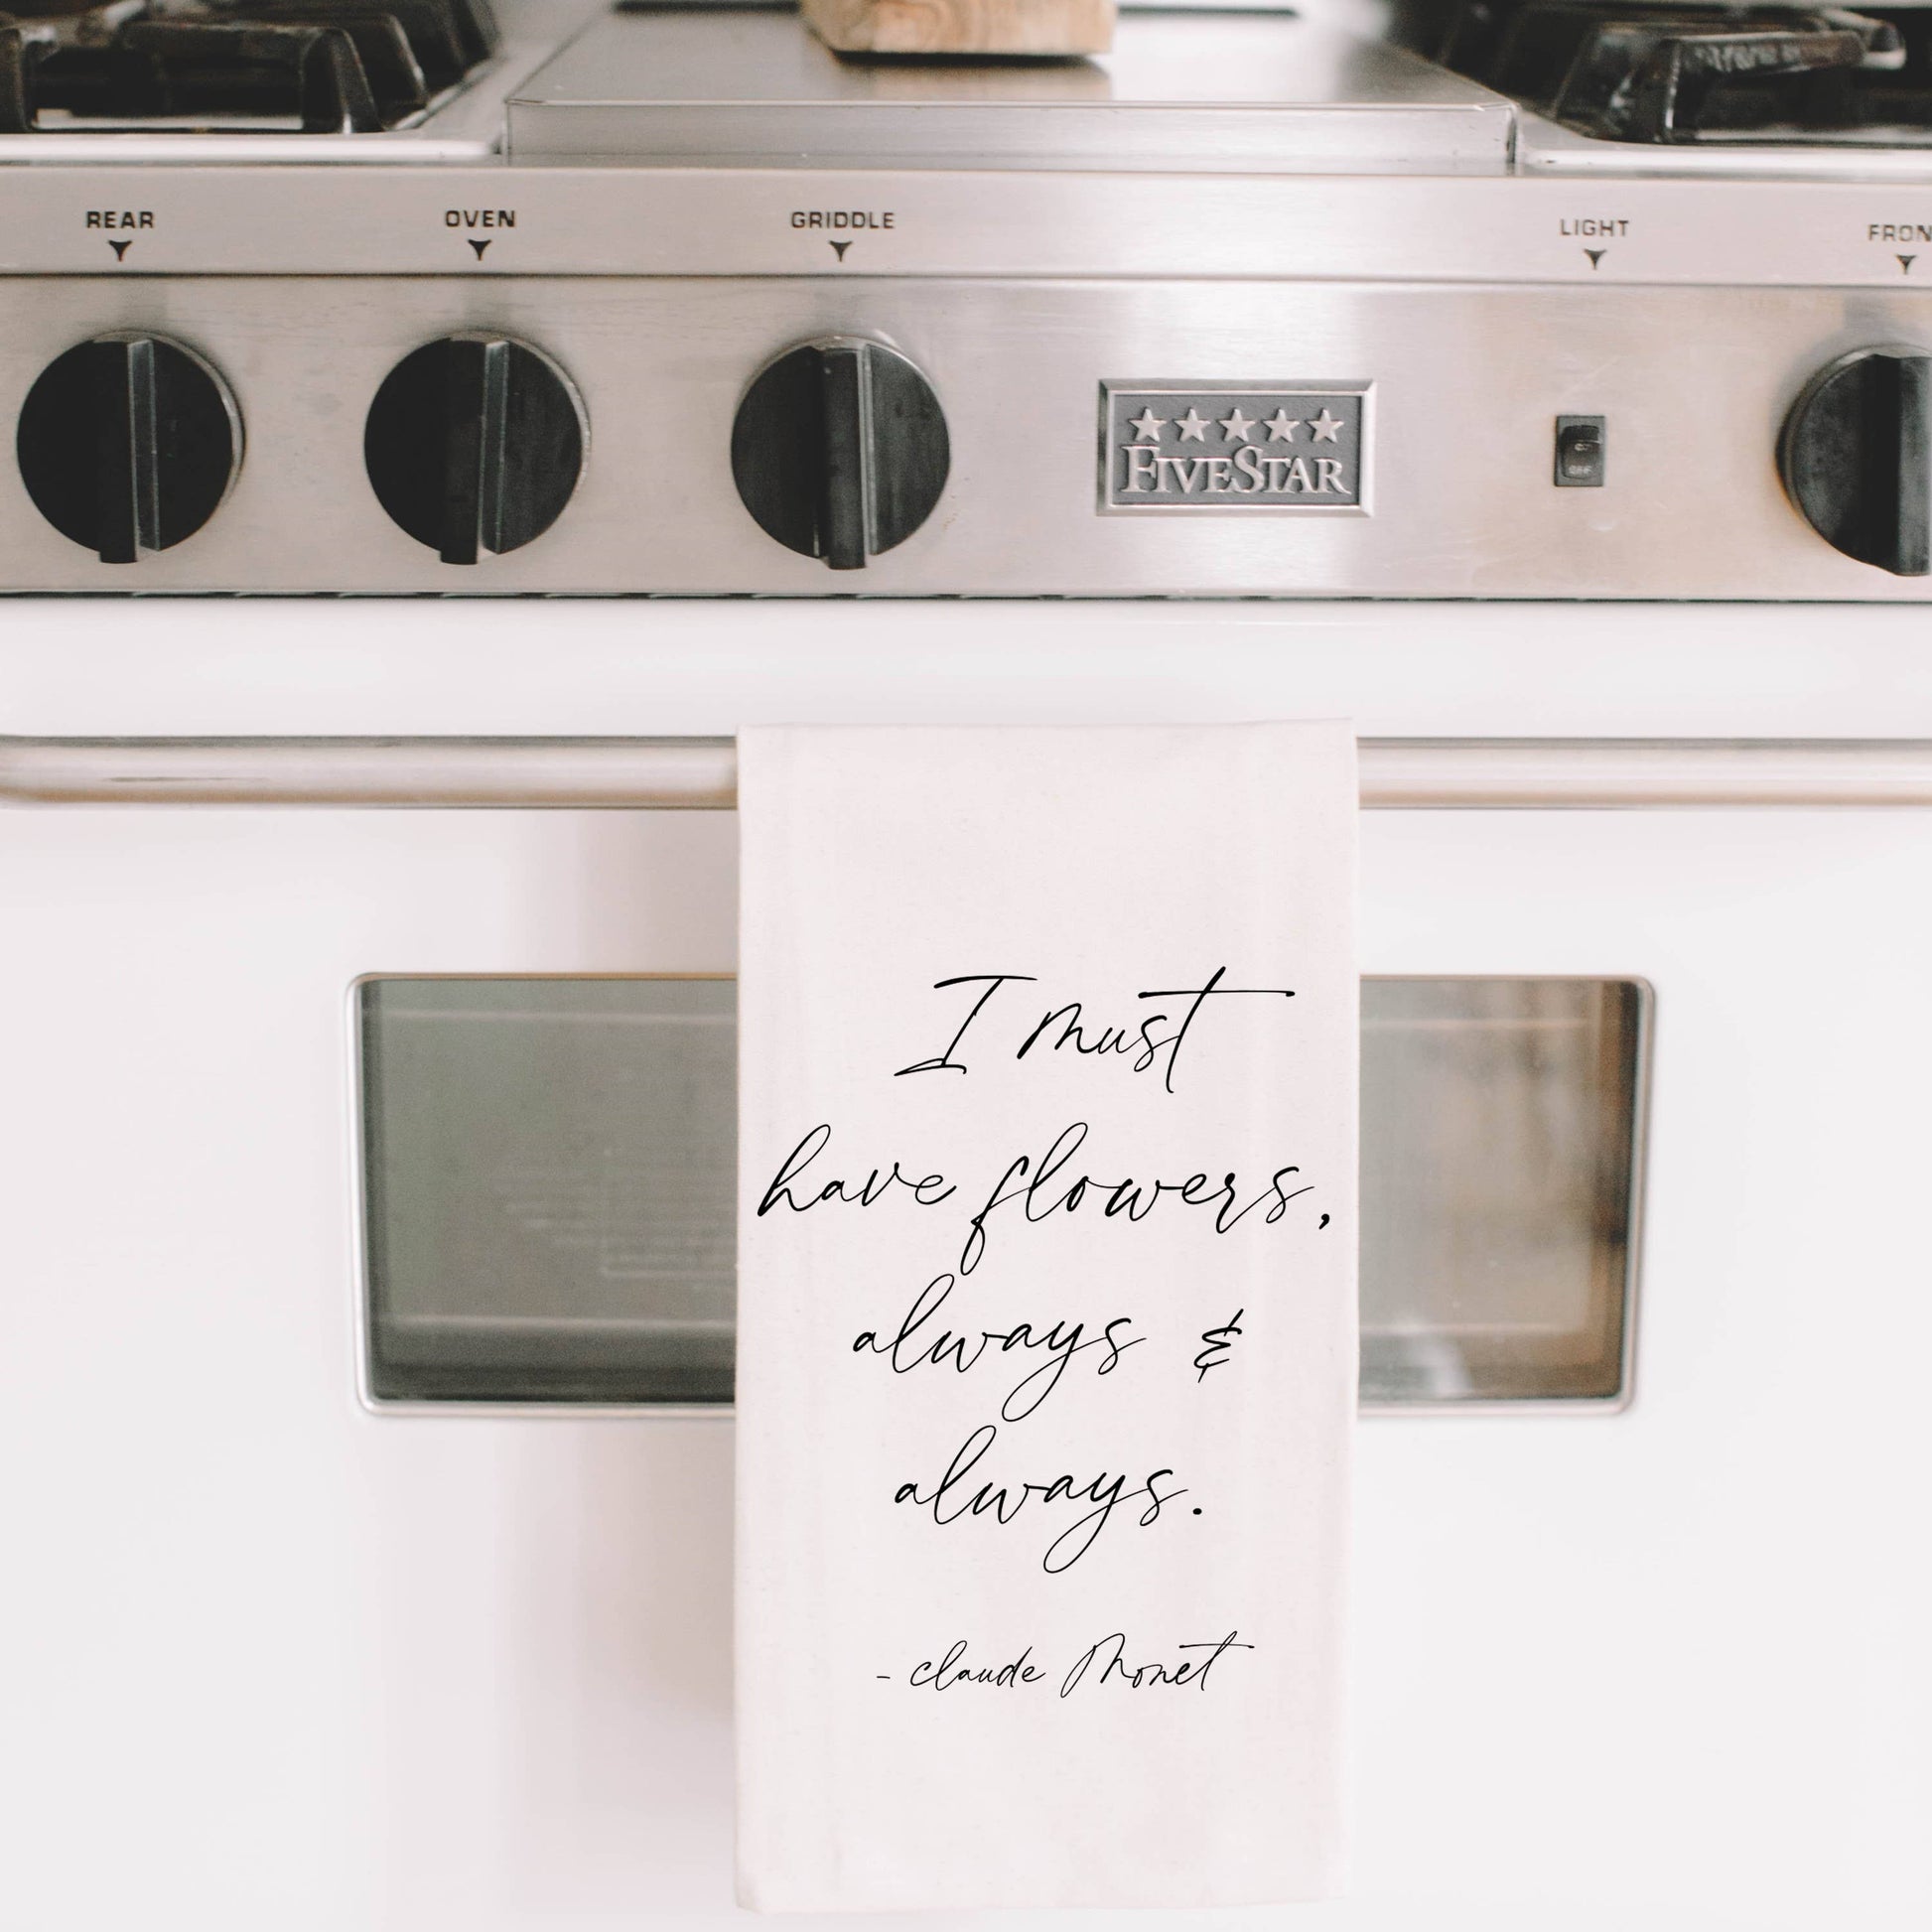 REAR
OVEN
GRIDDLE
LIGHT
FRON
FIVESTAR
OFF
I must
have flowers,
always &
always.
- claude Monet